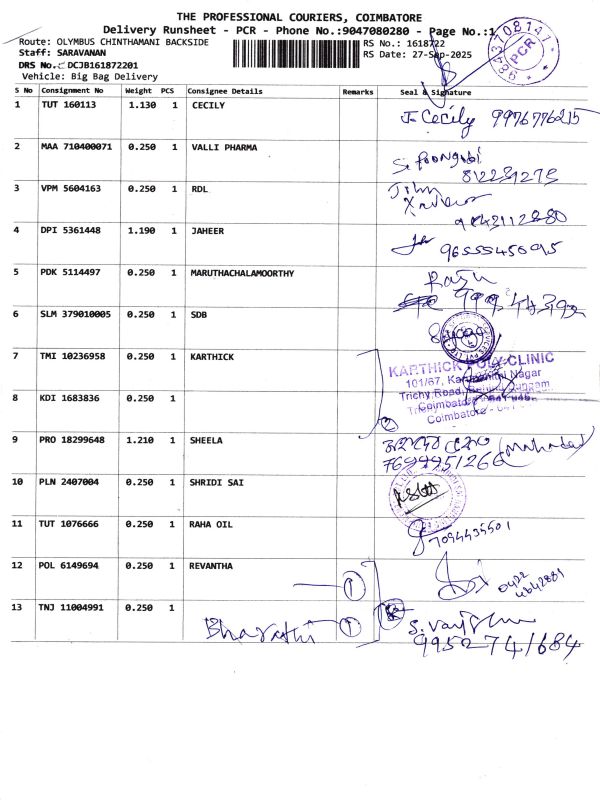 THE PROFESSIONAL COURIERS, COIMBATORE
Delivery Runsheet - PCR - Phone No.:9047080280 - Page No.:1
Route: OLYMBUS CHINTHAMANI BACKSIDE
RS No.: 1618722
Staff: SARAVANAN
RS Date: 27-Sep-2025
DRS No.: DCJB161872201
Vehicle: Big Bag Delivery
PCR
S No Consignment No Weight PCS Consignee Details Remarks Seal & Signature
1 TUT 160113 1.130 1 CECILY
J. Cecily 9976776215
2 MAA 710400071 0.250 1 VALLI PHARMA
3 VPM 5604163 0.250 1 RDL
John
4 DPI 5361448 1.190 1 JAHEER
5 PDK 5114497 0.250 1 MARUTHACHALAMOORTHY
Raju
6 SLM 379010005 0.250 1 SDB
7 TMI 10236958 0.250 1 KARTHICK
KARTHICK POLY CLINIC
101/67, Nagar
Trichy Road,
Coimbatore
8 KDI 1683836 0.250 1
Coimbatore
2
9 PRO 18299648 1.210 1 SHEELA
10 PLN 2407004 0.250 1 SHRIDI SAI
11 TUT 1076666 0.250 1 RAHA OIL
7094435501
12 POL 6149694 0.250 1 REVANTHA
1
0422
13 TNJ 11004991 0.250 1
Bharathi 1
9952741684